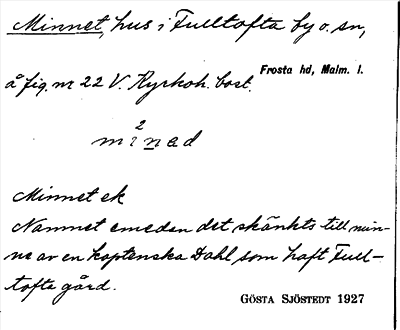 Minnet, hus i Fulltofta by o. sn,
Frosta hd, Malm. l.
å fig. nr 22 V. Kyrkoh. bost.
Minnet ek
Namnet emedan det skänkts till min-
ne av en kaptenska Dahl som haft Full-
tofta gård.
GÖSTA SJÖSTEDT 1927